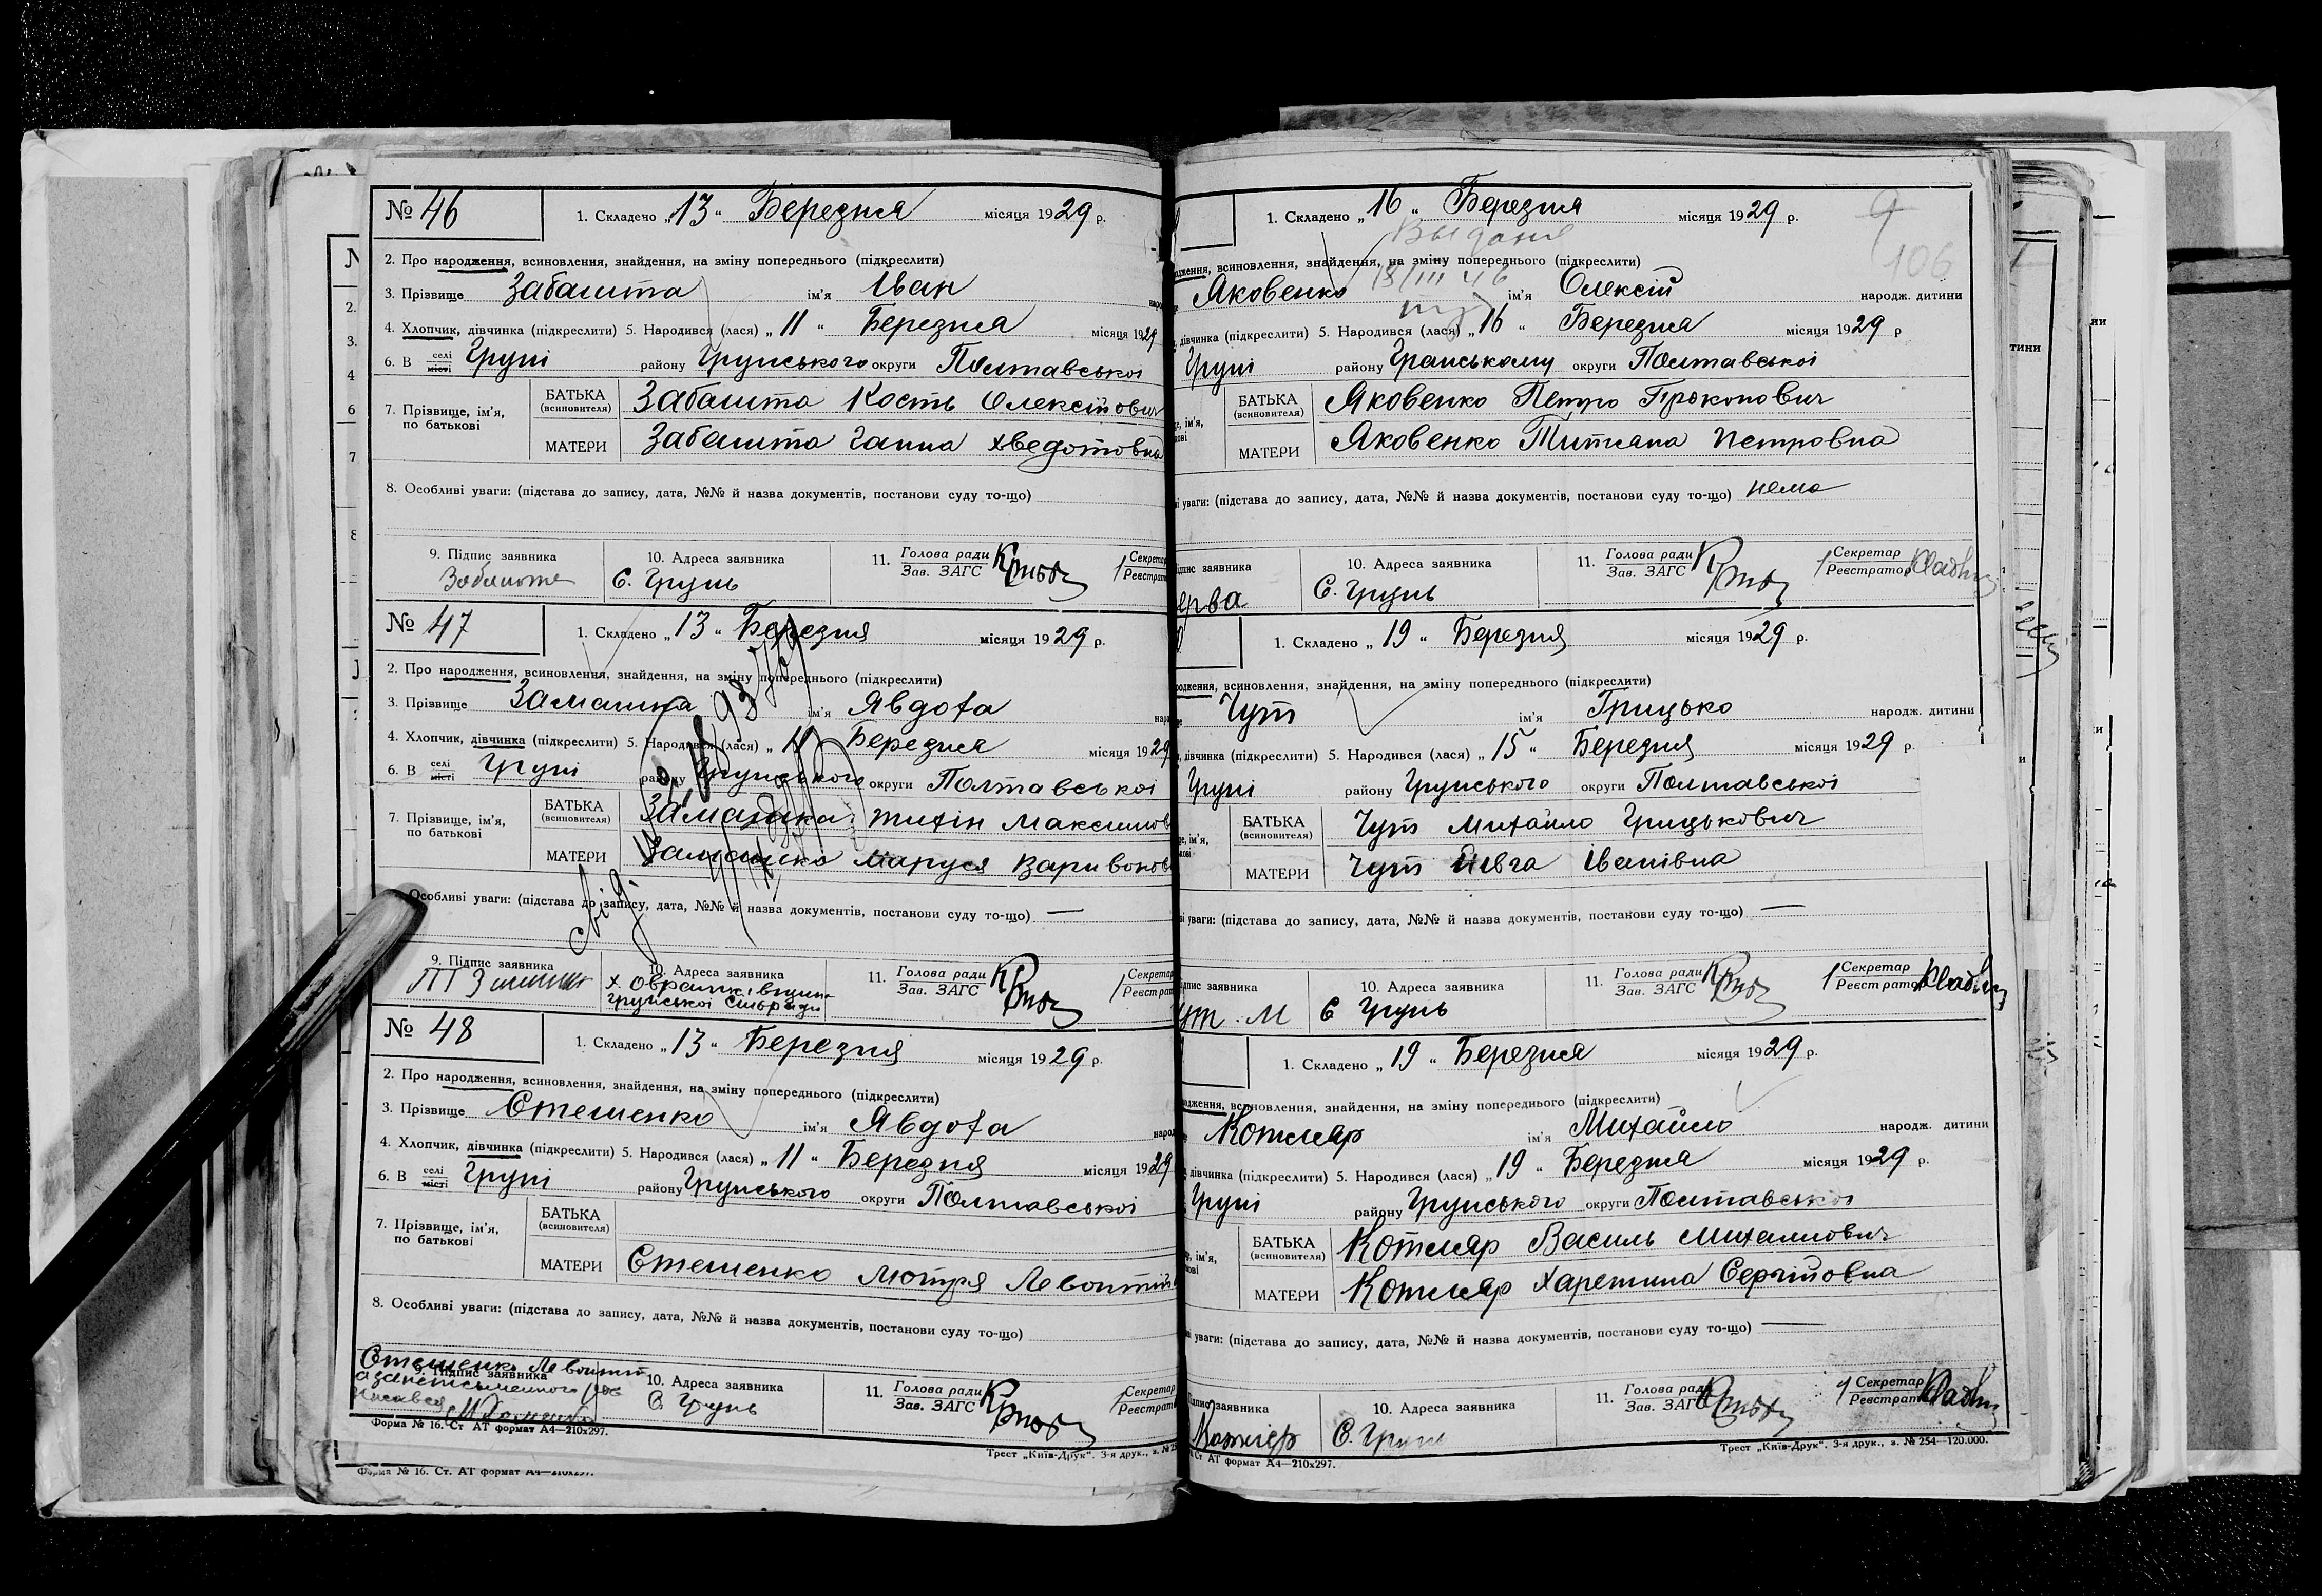 № 46
1. Складено „13“ Березня місяця 1929 р.
2. Про народження, всиновлення, знайдення, на зміну попереднього (підкреслити)
3. Прізвище Забашта ім'я Іван
4. Хлопчик, дівчинка (підкреслити) 5. Народився (лася) „11“ Березня місяця 1929
6. В селі місті Груні району Грунського округи Полтавської
7. Прізвище, ім'я, по батькові
БАТЬКА (всиновителя) Забашта Кость Олексійович
МАТЕРИ Забашта Ганна Хведотовна
8. Особливі уваги: (підстава до запису, дата, №№ й назва документів, постанови суду то-що)
9. Підпис заявника Забашта
10. Адреса заявника С. Грунь
11. Голова ради Зав. ЗАГС
Секретар Реєстрат
№ 47
1. Складено „13“ Березня місяця 1929 р.
2. Про народження, всиновлення, знайдення, на зміну попереднього (підкреслити)
3. Прізвище Замашка ім'я Явдоха
4. Хлопчик, дівчинка (підкреслити) 5. Народився (лася) „11“ Березня місяця 1929
6. В селі місті Груні району Грунського округи Полтавської
7. Прізвище, ім'я, по батькові
БАТЬКА (всиновителя) Замашка Тихін Максимов
МАТЕРИ Замашка Маруся Варивонов
Особливі уваги: (підстава до запису, дата, №№ й назва документів, постанови суду то-що) —
9. Підпис заявника
10. Адреса заявника х. Овражк
Грунської Сільради
11. Голова ради Зав. ЗАГС
Секретар Реєстрат
№ 48
1. Складено „13“ Березня місяця 1929 р.
2. Про народження, всиновлення, знайдення, на зміну попереднього (підкреслити)
3. Прізвище Стешенко ім'я Явдоха
4. Хлопчик, дівчинка (підкреслити) 5. Народився (лася) „11“ Березня місяця 1929
6. В селі місті Груні району Грунського округи Полтавської
7. Прізвище, ім'я, по батькові
БАТЬКА (всиновителя)
МАТЕРИ Стешенко Мотря Левонтій
8. Особливі уваги: (підстава до запису, дата, №№ й назва документів, постанови суду то-що)
Стешенко Левонтій
9. Підпис заявника
10. Адреса заявника С. Грунь
11. Голова ради Зав. ЗАГС
Секретар Реєстрат
Форма № 16. Ст АТ формат А4—210х297.
Трест „Київ-Друк“. 3-я друк., з. № 25
Форма № 16. Ст. АТ формат А4—210х297.
106
1. Складено „16“ Березня місяця 1929 р.
Выдано
18/III 46
одження, всиновлення, знайдення, на зміну попереднього (підкреслити)
Яковенко ім'я Олексій народж. дитини
дівчинка (підкреслити) 5. Народився (лася) „16“ Березня місяця 1929 р
Груні району Грунському округи Полтавської
БАТЬКА (всиновителя) Яковенко Петро Прокопович
МАТЕРИ Яковенко Титяна Петровна
уваги: (підстава до запису, дата, №№ й назва документів, постанови суду то-що) нема
підпис заявника ерва
10. Адреса заявника С. Грунь
11. Голова ради Зав. ЗАГС
Секретар Реєстратор
1. Складено „19“ Березня місяця 1929 р.
одження, всиновлення, знайдення, на зміну попереднього (підкреслити)
Чут ім'я Грицько народж. дитини
дівчинка (підкреслити) 5. Народився (лася) „15“ Березня місяця 1929 р.
Груні району Грунського округи Полтавської
БАТЬКА (всиновителя) Чут Михайло Грицькович
МАТЕРИ Чут Ївга Іванівна
уваги: (підстава до запису, дата, №№ й назва документів, постанови суду то-що) —
підпис заявника ут М
10. Адреса заявника С Грунь
11. Голова ради Зав. ЗАГС
Секретар Реєстратор
1. Складено „19“ Березня місяця 1929 р.
одження, всиновлення, знайдення, на зміну попереднього (підкреслити)
Котляр ім'я Михайло народж. дитини
дівчинка (підкреслити) 5. Народився (лася) „19“ Березня місяця 1929 р.
Груні району Грунського округи Полтавської
БАТЬКА (всиновителя) Котляр Василь Михайлович
МАТЕРИ Котляр Харетина Сергійовна
уваги: (підстава до запису, дата, №№ й назва документів, постанови суду то-що) —
Підпис заявника Котляр
10. Адреса заявника С. Грунь
11. Голова ради Зав. ЗАГС
Секретар Реєстратор
Ст АТ формат А4—210х297.
Трест „Київ-Друк“. 3-я друк., з. № 254—120.000.